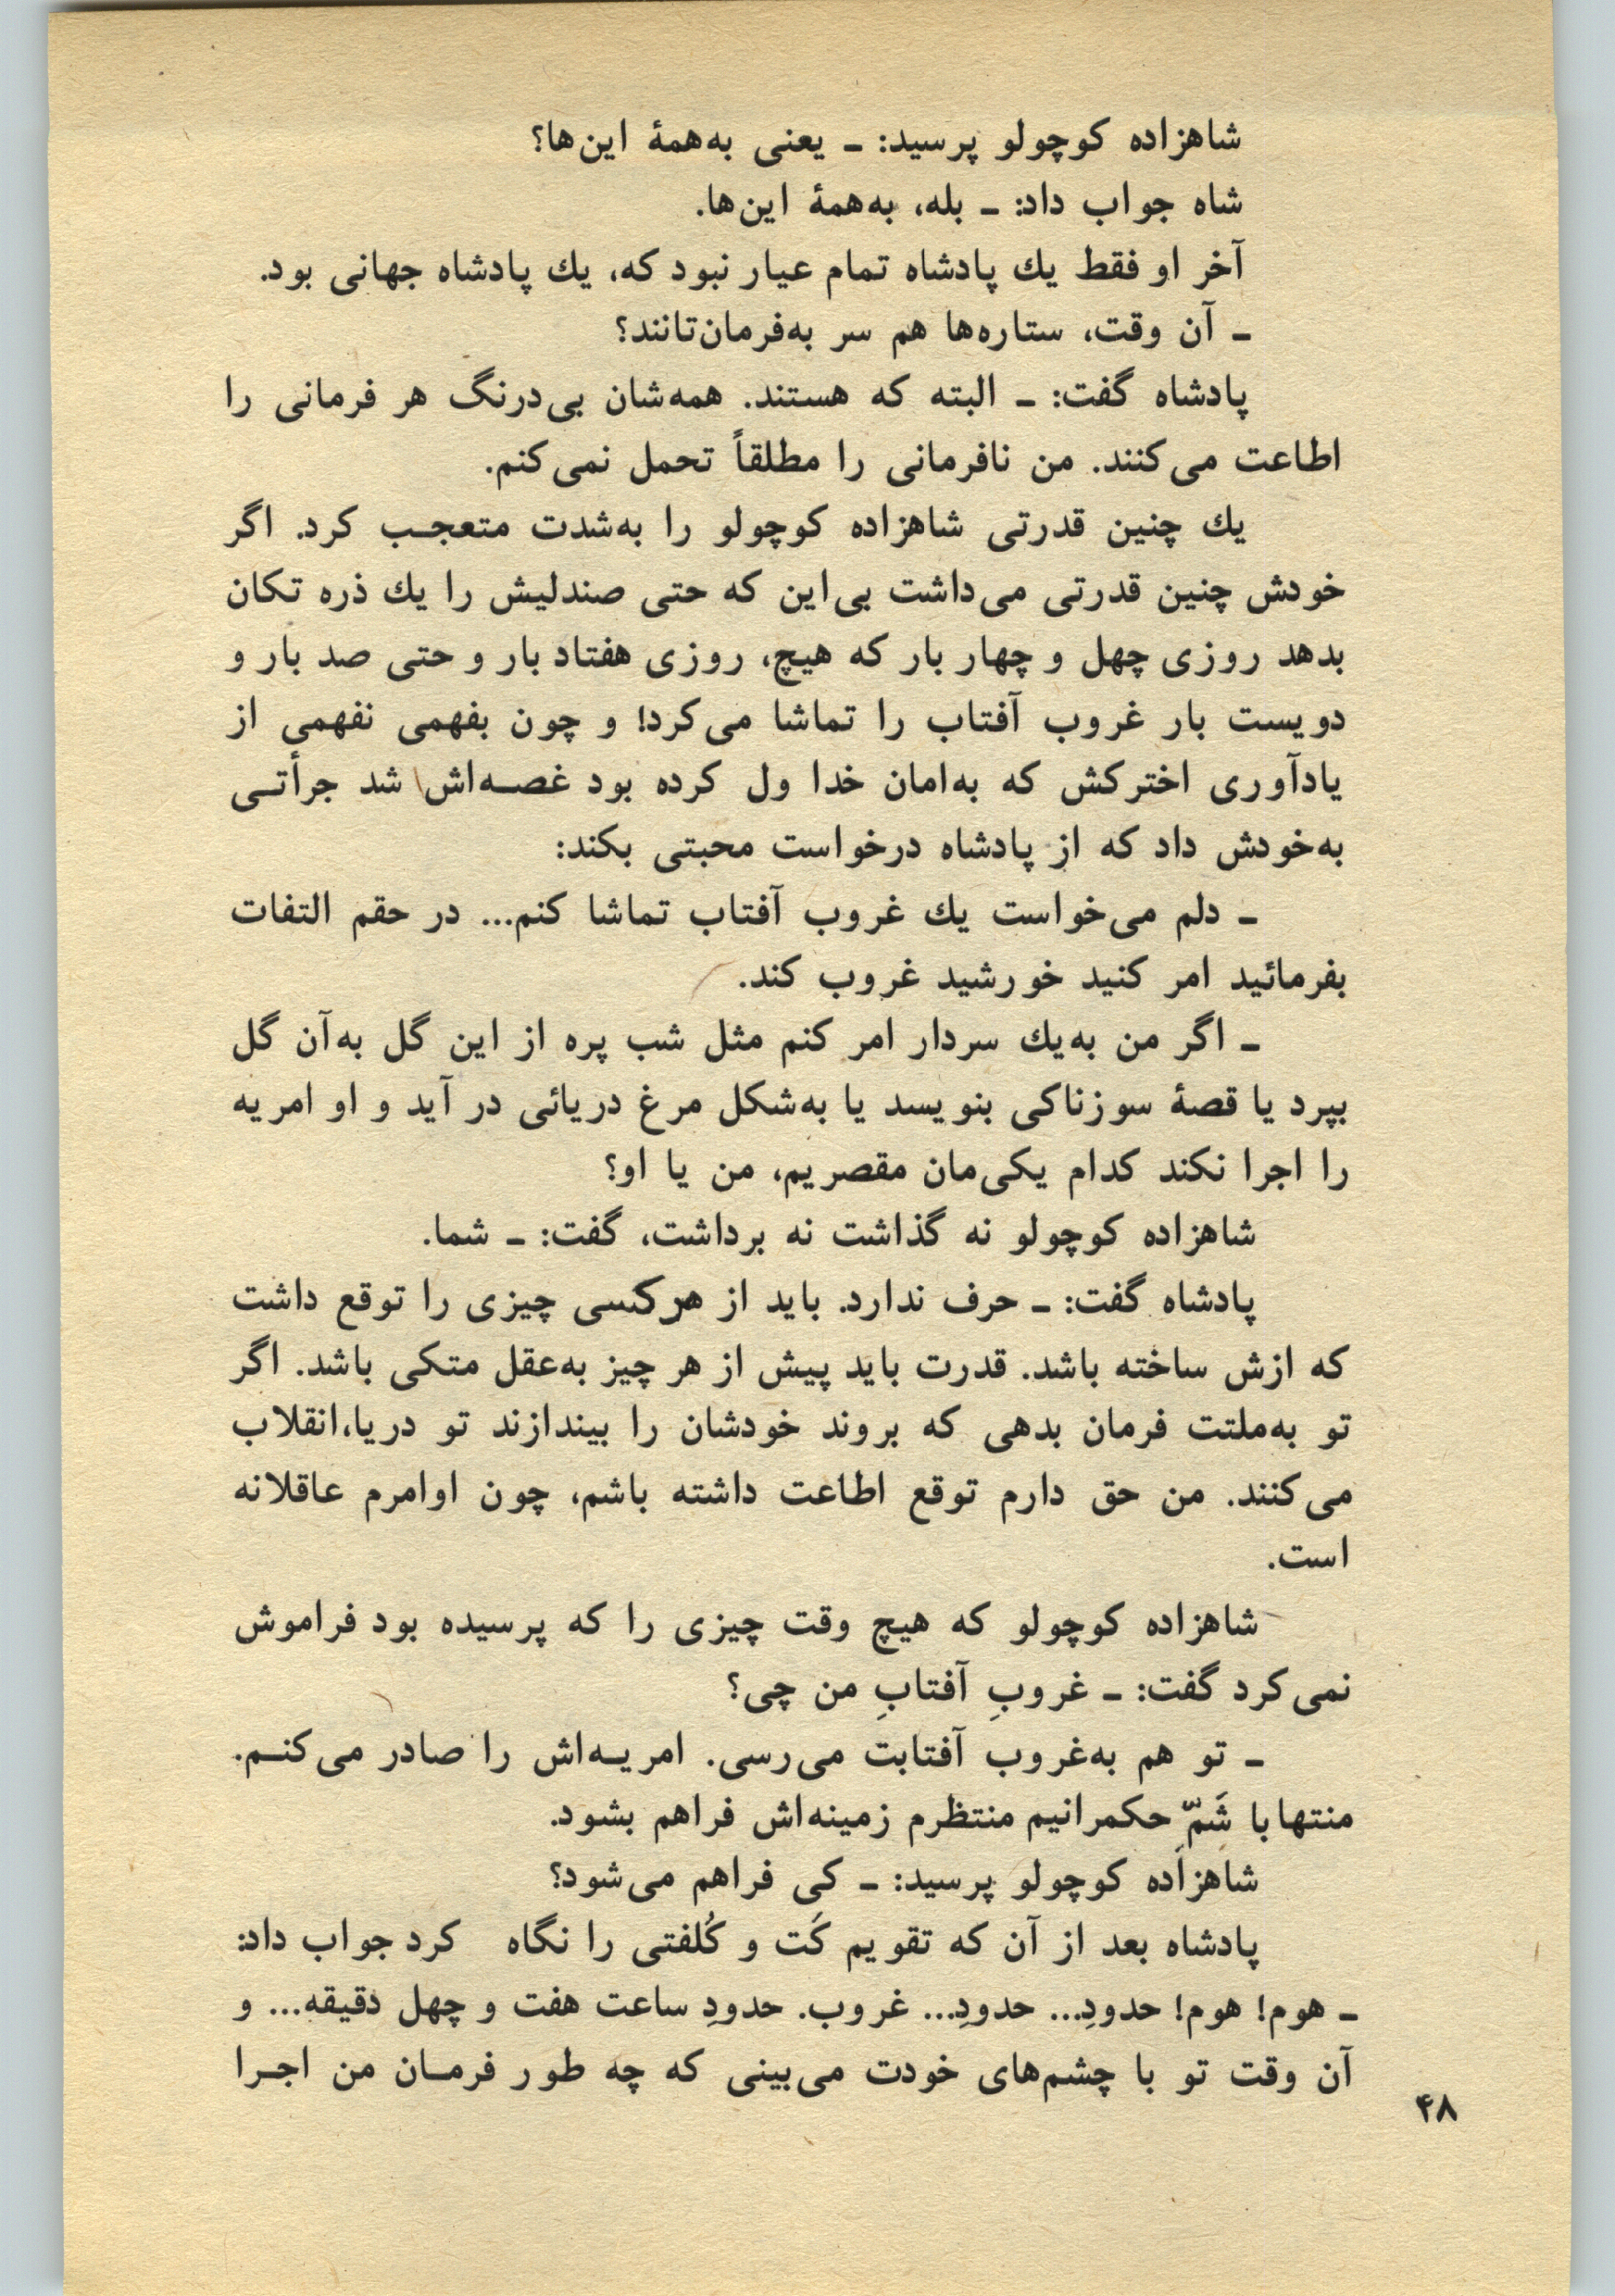 شاهزاده کوچولو پرسید: ـ یعنی به‌همهٔ این‌ها؟
شاه جواب داد: ـ بله، به‌همهٔ این‌ها.
آخر او فقط یك پادشاه تمام عیار نبود که، یك پادشاه جهانی بود.
ـ آن وقت، ستاره‌ها هم سر به‌فرمان‌تانند؟
پادشاه گفت: ـ البته که هستند. همه‌شان بی‌درنگ هر فرمانی را
اطاعت می‌کنند. من نافرمانی را مطلقاً تحمل نمی‌کنم.
یك چنین قدرتی شاهزاده کوچولو را به‌شدت متعجـب کرد. اگر
خودش چنین قدرتی می‌داشت بی‌این که حتی صندلیش را یك ذره تکان
بدهد روزی چهل و چهار بار که هیچ، روزی هفتاد بار و حتی صد بار و
دویست بار غروب آفتاب را تماشا می‌کرد! و چون بفهمی نفهمی از
یادآوری اخترکش که به‌امان خدا ول کرده بود غصـه‌اش شد جرأتـی
به‌خودش داد که از پادشاه درخواست محبتی بکند:
ـ دلم می‌خواست یك غروب آفتاب تماشا کنم... در حقم التفات
بفرمائید امر کنید خورشید غروب کند.
ـ اگر من به‌یك سردار امر کنم مثل شب پره از این گل به‌آن گل
بپرد یا قصهٔ سوزناکی بنویسد یا به‌شکل مرغ دریائی در آید و او امریه
را اجرا نکند کدام یکی‌مان مقصریم، من یا او؟
شاهزاده کوچولو نه گذاشت نه برداشت، گفت: ـ شما.
پادشاه گفت: ـ حرف ندارد. باید از هرکسی چیزی را توقع داشت
که ازش ساخته باشد. قدرت باید پیش از هر چیز به‌عقل متکی باشد. اگر
تو به‌ملتت فرمان بدهی که بروند خودشان را بیندازند تو دریا،انقلاب
می‌کنند. من حق دارم توقع اطاعت داشته باشم، چون اوامرم عاقلانه
است.
شاهزاده کوچولو که هیچ وقت چیزی را که پرسیده بود فراموش
نمی‌کرد گفت: ـ غروبِ آفتابِ من چی؟
ـ تو هم به‌غروب آفتابت می‌رسی. امریـه‌اش را صادر می‌کنـم.
منتهابا شَمّ‌ِ حکمرانیم منتظرم زمینه‌اش فراهم بشود.
شاهزاده کوچولو پرسید: ـ کی فراهم می‌شود؟
پادشاه بعد از آن که تقویم کَت و کُلفتی را نگاه کرد جواب داد:
ـ هوم! هوم! حدودِ... حدودِ... غروب. حدودِ ساعت هفت و چهل دقیقه... و
آن وقت تو با چشم‌های خودت می‌بینی که چه طور فرمـان من اجـرا
۴۸